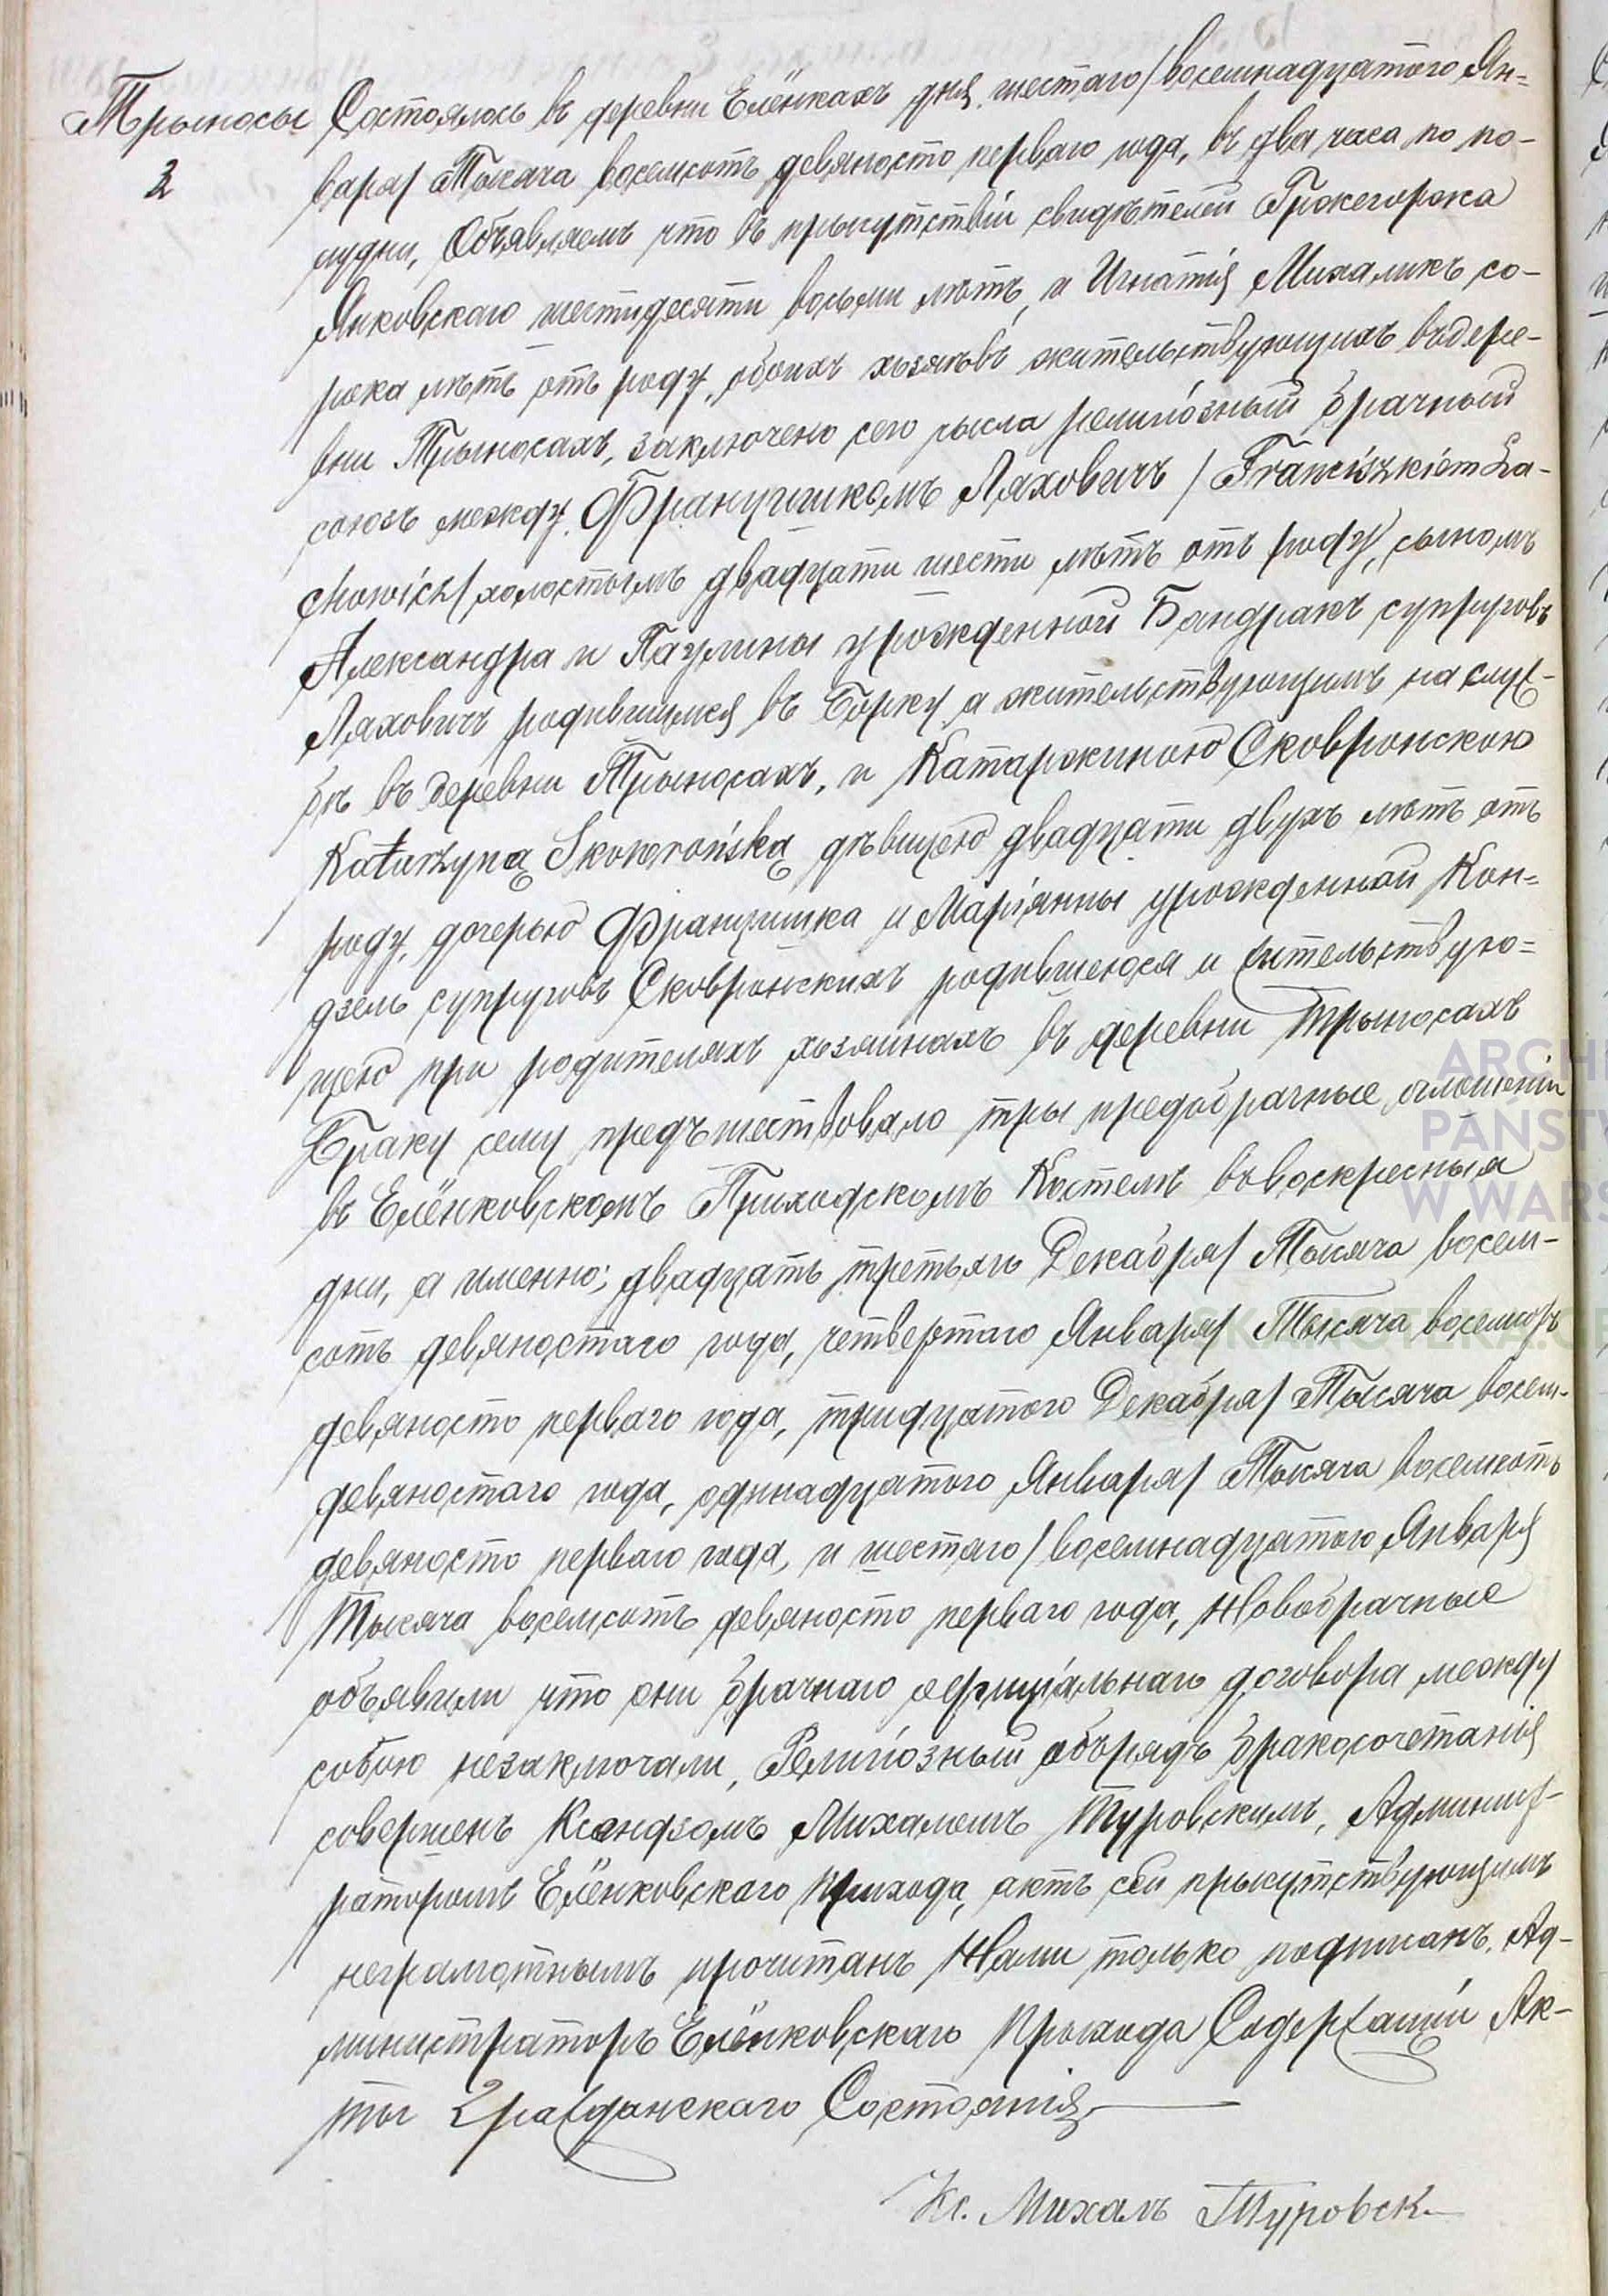 Трыносы
2
Состоялось въ деревни Елёнкахъ дня шестаго/восемнадцатого Ян=
варя/ Тысяча восемсотъ девяносто перваго года, въ два часа по по-
лудни, Объявляемъ что въ прысутствіи свидѣтелей Гржегоржа
Янковскаго шестидесяти восьми лѣтъ, и Игнатія Михаликъ со-
рока лѣтъ отъ роду, обоихъ хозяевъ жительствующихъ въ дере-
вни Трыносахъ, заключено сего числа религіозный брачный
союзъ между Францишкомъ Ляховичъ / Franciszkiem La-
chowicz/ холостымъ двадцати шести лѣтъ отъ роду, сыномъ
Александра и Паулины урожденной Бандракъ супруговъ
Ляховичъ родившимся въ Борку а жительствующимъ на служ-
бѣ въ деревни Трыносахъ, и Катаржиною Сковронскою
Katarzyną Skowrońską дѣвицею двадцати двухъ лѣтъ отъ
роду, дочерью Францишка и Маріянны урожденной Кон=
дзель супруговъ Сковронскихъ родившеюся и жительствую=
щею при родителяхъ хозяинахъ въ деревни Трыносахъ
Браку сему предъшествовало тры предбрачные оглошенія
въ Елёнковскомъ Приходскомъ Костелѣ въ воскресныя
дни, а именно; двадцать третьяго Декабря/ Тысяча восем-
сотъ девяностаго года, четвертаго Января/ Тысяча восемсотъ
девяносто перваго года, тридцатого Декабря/ Тысяча восем-
девяностаго года, одинадцатого Января/ Тысяча восемсотъ
девяносто перваго года, и шестаго/восемнадцатого Января
Тысяча восемсотъ девяносто перваго года, Новобрачные
объявили что они брачнаго договора между
собою незаключали, Религіозный обърядъ бракосочетанія
совершенъ Ксендзомъ Михалемъ Туровскимъ, Админист-
раторомъ Елёнковскаго прихода, актъ сей прысутствующимъ
неграмотнымъ прочитанъ Нами только подписанъ. Ад-
министраторъ Елёнковскаго Прыхода Содержащій Ак-
ты Гражданскаго Состоянія
Кс. Михалъ Туровск
ARCHI
PAŃSTW
W WARS
SKANOTEKA.GE